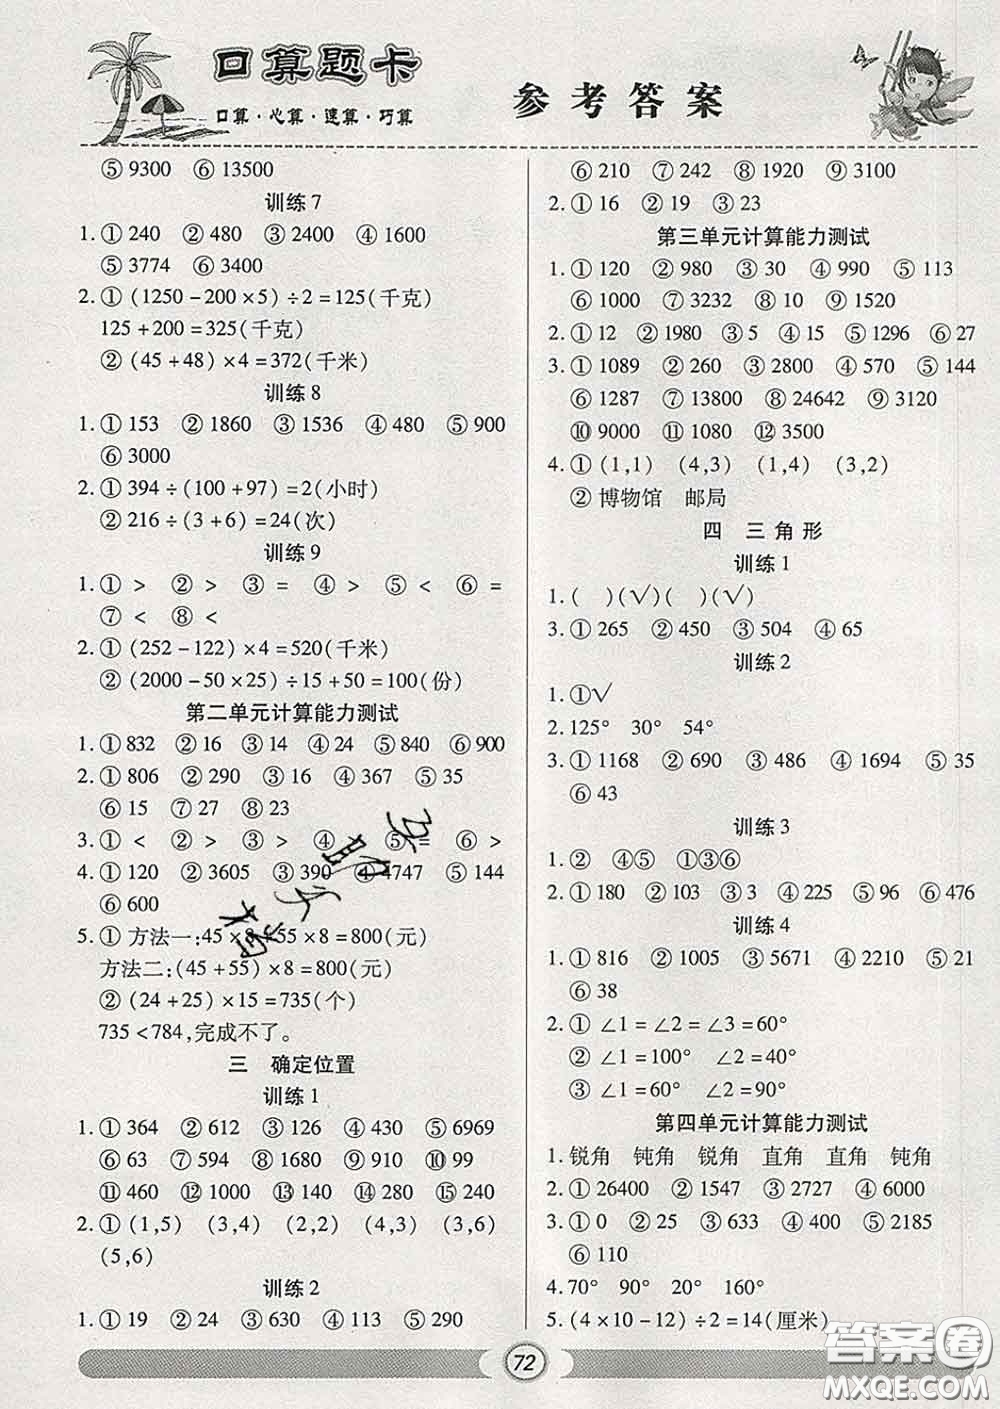 口算题卡
口算·心算·速算·巧算
参考答案
⑤ 9300 ⑥ 13500
训练7
1. ① 240 ② 480 ③ 2400 ④ 1600
⑤ 3774 ⑥ 3400
2. ① (1250-200×5)÷2=125(千克)
125+200=325(千克)
② (45+48)×4=372(千米)
训练8
1. ① 153 ② 1860 ③ 1536 ④ 480 ⑤ 900
⑥ 3000
2. ① 394÷(100+97)=2(小时)
② 216÷(3+6)=24(次)
训练9
1. ① > ② > ③ = ④ > ⑤ < ⑥ =
⑦ < ⑧ <
2. ① (252-122)×4=520(千米)
② (2000-50×25)÷15+50=100(份)
第二单元计算能力测试
1. ① 832 ② 16 ③ 14 ④ 24 ⑤ 840 ⑥ 900
2. ① 806 ② 290 ③ 16 ④ 367 ⑤ 35
⑥ 15 ⑦ 27 ⑧ 23
3. ① < ② > ③ > ④ ⑤ = ⑥ >
4. ① 120 ② 3605 ③ 390 ④ 4747 ⑤ 144
⑥ 600
5. ① 方法一:45×8+55×8=800(元)
方法二:(45+55)×8=800(元)
② (24+25)×15=735(个)
735<784,完成不了。
三 确定位置
训练1
1. ① 364 ② 612 ③ 126 ④ 430 ⑤ 6969
⑥ 63 ⑦ 594 ⑧ 1680 ⑨ 910 ⑩ 99
⑪ 460 ⑫ 1000 ⑬ 140 ⑭ 280 ⑮ 240
2. ① (1,5) (3,4) (2,2) (4,3) (3,6)
(5,6)
训练2
1. ① 19 ② 24 ③ 630 ④ 113 ⑤ 290
⑥ 210 ⑦ 242 ⑧ 1920 ⑨ 3100
2. ① 16 ② 19 ③ 23
第三单元计算能力测试
1. ① 120 ② 980 ③ 30 ④ 990 ⑤ 113
⑥ 1000 ⑦ 3232 ⑧ 10 ⑨ 1520
2. ① 12 ② 1980 ③ 5 ④ 15 ⑤ 1296 ⑥ 27
3. ① 1089 ② 260 ③ 2800 ④ 570 ⑤ 144
⑥ 1287 ⑦ 13800 ⑧ 24642 ⑨ 3120
⑩ 9000 ⑪ 1080 ⑫ 3500
4. ① (1,1) (4,3) (1,4) (3,2)
② 博物馆 邮局
四 三角形
训练1
1. ( )(√)( )(√)
3. ① 265 ② 450 ③ 504 ④ 65
训练2
1. ①√
2. 125° 30° 54°
3. ① 1168 ② 990 ③ 486 ④ 1694 ⑤ 35
⑥ 43
训练3
1. ② ④⑤ ①③⑥
2. ① 180 ② 103 ③ 3 ④ 225 ⑤ 96 ⑥ 476
训练4
1. ① 816 ② 1005 ③ 5671 ④ 2210 ⑤ 21
⑥ 38
2. ① ∠1=∠2=∠3=60°
② ∠1=100° ∠2=40°
③ ∠1=60° ∠2=90°
第四单元计算能力测试
1. 锐角 钝角 锐角 直角 直角 钝角
2. ① 26400 ② 1547 ③ 2727 ④ 6000
3. ① 0 ② 25 ③ 633 ④ 400 ⑤ 2185
⑥ 110
4. 70° 90° 20° 160°
5. (4×10-12)÷2=14(厘米)
72
答案圈
MXQE.COM